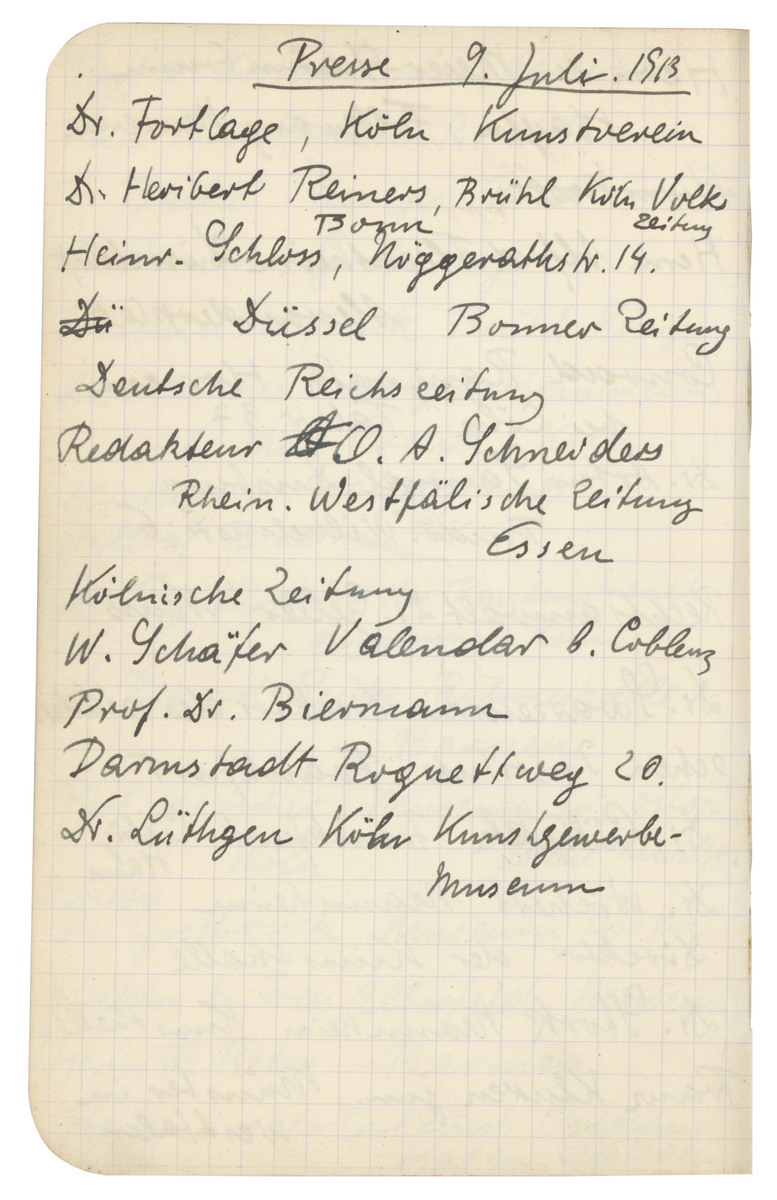 Presse 9. Juli. 1913
Dr. Fortlage, Köln Kunstverein
Dr. Heribert Reiners, Brühl Köln Volks
Zeitung
Bonn
Heinr. Schloss, Nöggerathstr. 14.
Dü Düssel Bonner Zeitung
Deutsche Reichszeitung
Redakteur O. A. Schneiders
Rhein. Westfälische Zeitung
Essen
Kölnische Zeitung
W. Schäfer Valendar b. Coblenz
Prof. Dr. Biermann
Darmstadt Roquettweg 20.
Dr. Lüthgen Köln Kunstgewerbe-
Museum